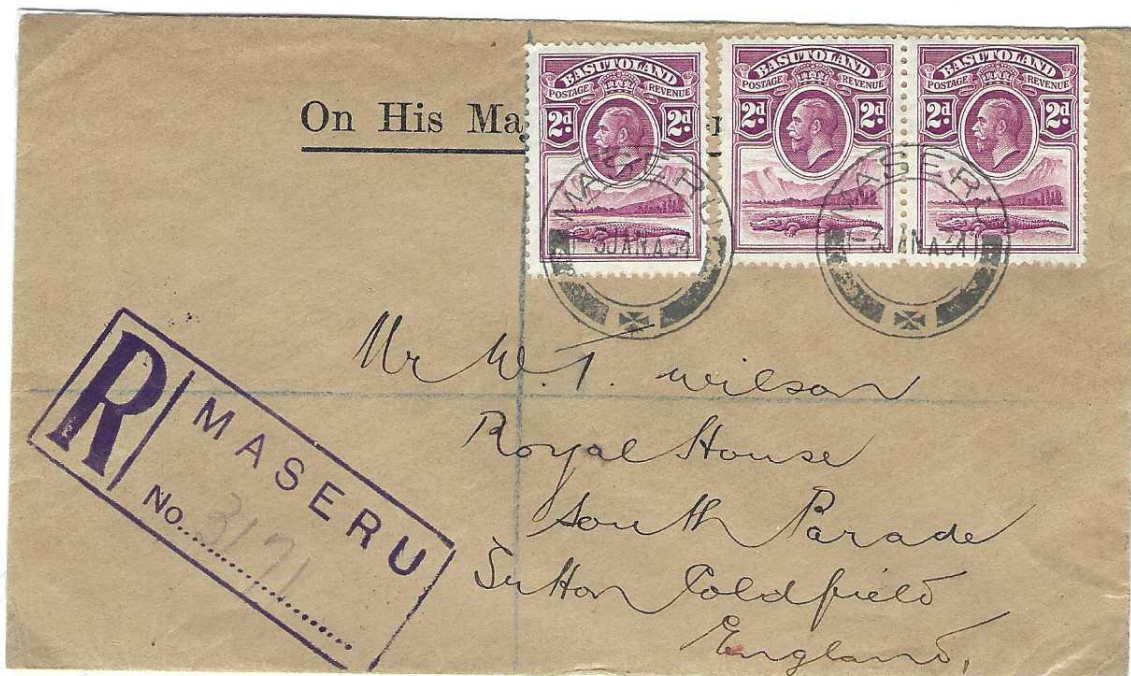 On His Ma
BASUTOLAND
POSTAGE REVENUE
2d 2d
BASUTOLAND
POSTAGE REVENUE
2d 2d
BASUTOLAND
POSTAGE REVENUE
2d 2d
MASERU
-3 JAN.A34
MASERU
-3 JAN.A34
Mr W. T. Wilson
Royal House
South Parade
Sutton Coldfield
England,
R MASERU
No. 3171